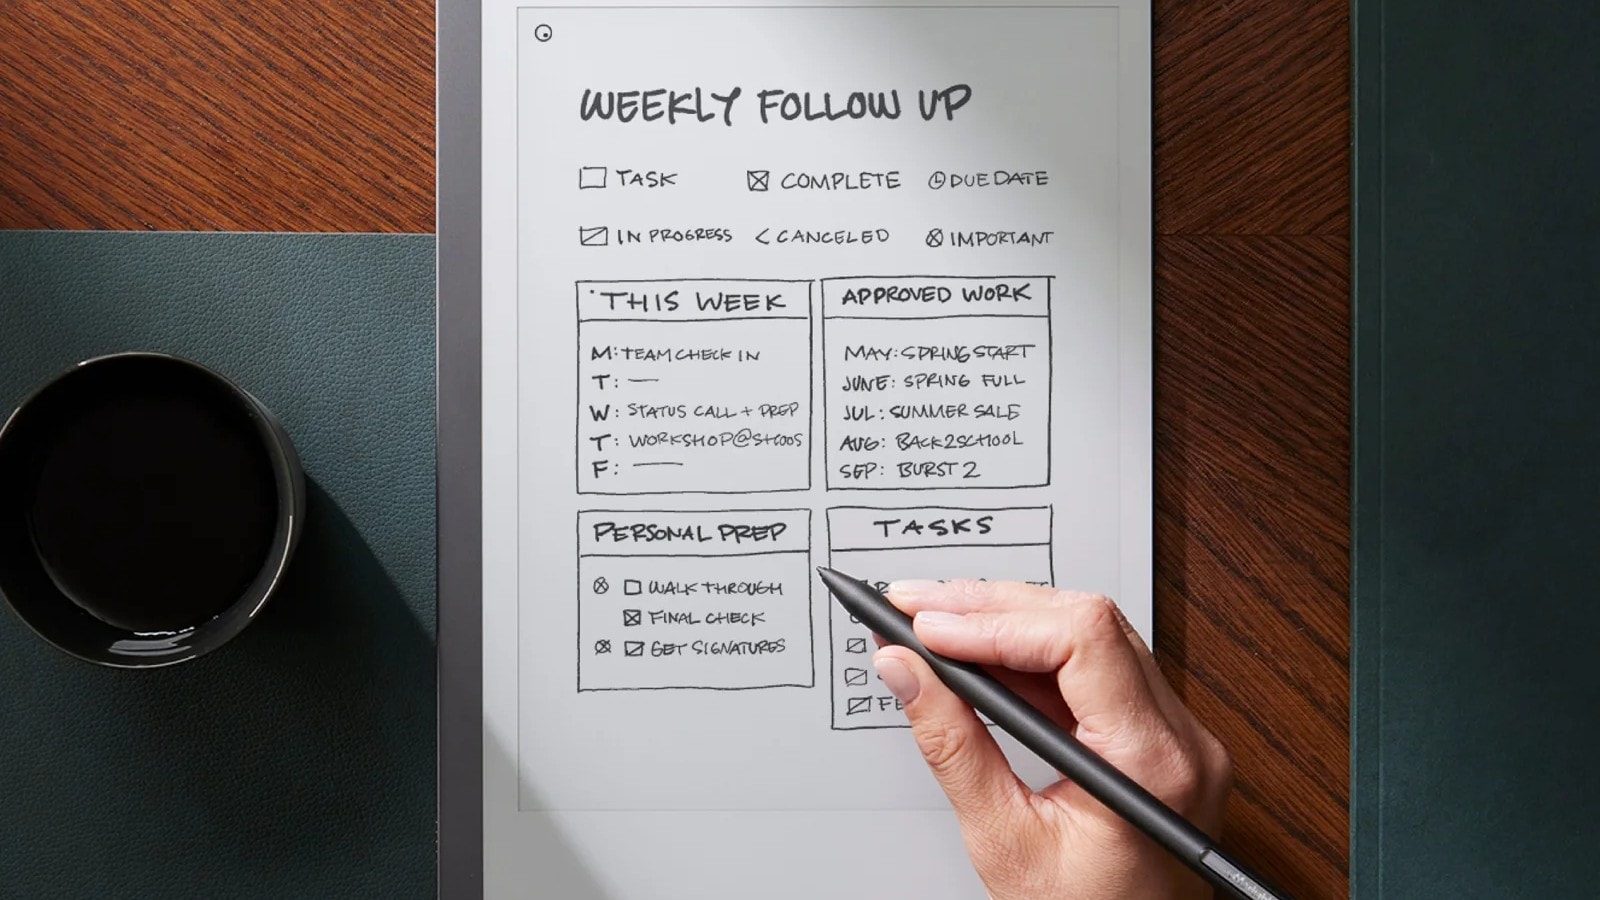 WEEKLY FOLLOW UP
TASK COMPLETE DUE DATE
IN PROGRESS < CANCELED IMPORTANT
THIS WEEK
M: TEAM CHECK IN
T: —
W: STATUS CALL + PREP
T: WORKSHOP@
F: —
APPROVED WORK
MAY: SPRING START
JUNE: SPRING FULL
JUL: SUMMER SALE
AUG: BACK2SCHOOL
SEP: BURST 2
PERSONAL PREP
WALK THROUGH
FINAL CHECK
GET SIGNATURES
TASKS
FE